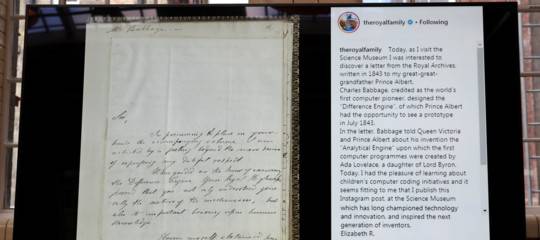 Mr. Babbage
theroyalfamily • Following
theroyalfamily Today, as I visit the
Science Museum I was interested to
discover a letter from the Royal Archives,
written in 1843 to my great-great-
grandfather Prince Albert.
Charles Babbage, credited as the world's
first computer pioneer, designed the
"Difference Engine", of which Prince Albert
had the opportunity to see a prototype
in July 1843.
In the letter, Babbage told Queen Victoria
and Prince Albert about his invention the
"Analytical Engine" upon which the first
computer programmes were created by
Ada Lovelace, a daughter of Lord Byron.
Today, I had the pleasure of learning about
children's computer coding initiatives and it
seems fitting to me that I publish this
Instagram post, at the Science Museum
which has long championed technology
and innovation, and inspired the next
generation of inventors.
Elizabeth R.
Sir,
In presuming to place in your
hands the accompanying volume, I am
actuated by a feeling beyond the mere desire
of expressing my dutiful respect.
the Difference Engine
proved that you not only understood
of the mechanism, but
also its important bearing upon human
knowledge